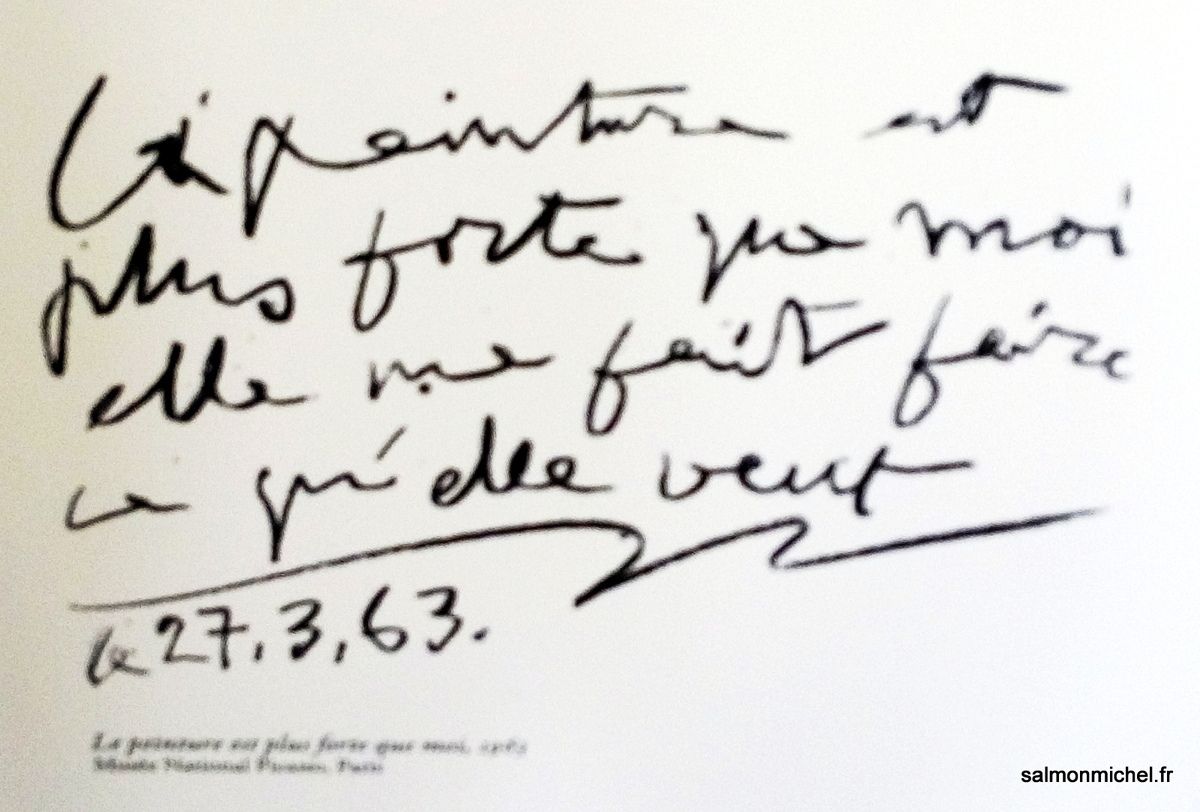 La peinture est
plus forte que moi
elle me fait faire
ce qu'elle veut
le 27.3.63.
La peinture est plus forte que moi, 1963
Musée National Picasso, Paris
salmonmichel.fr